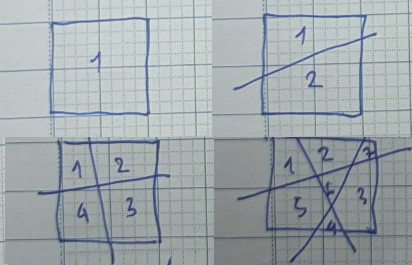 1
1
2
1 2
4 3
1 2 7
6
5 3
4